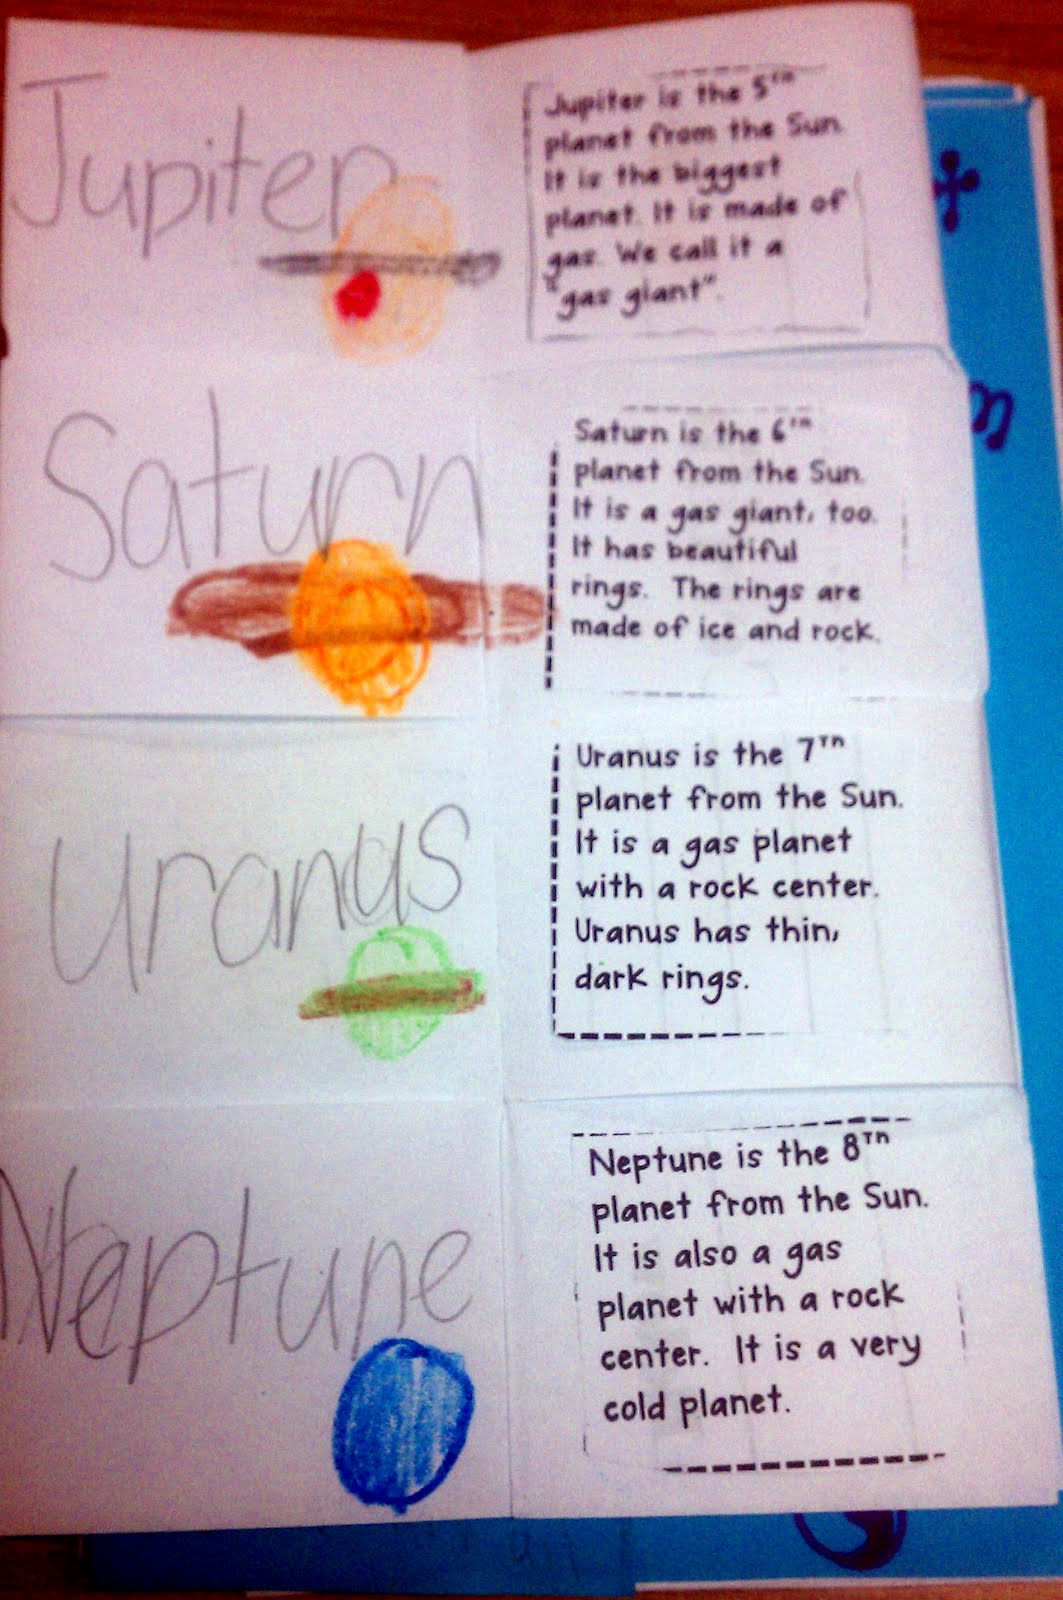 Jupiter
Jupiter is the 5TH
planet from the Sun.
It is the biggest
planet. It is made of
gas. We call it a
"gas giant".
Saturn
Saturn is the 6TH
planet from the Sun.
It is a gas giant, too.
It has beautiful
rings. The rings are
made of ice and rock.
Uranus
Uranus is the 7TH
planet from the Sun.
It is a gas planet
with a rock center.
Uranus has thin,
dark rings.
Neptune
Neptune is the 8TH
planet from the Sun.
It is also a gas
planet with a rock
center. It is a very
cold planet.